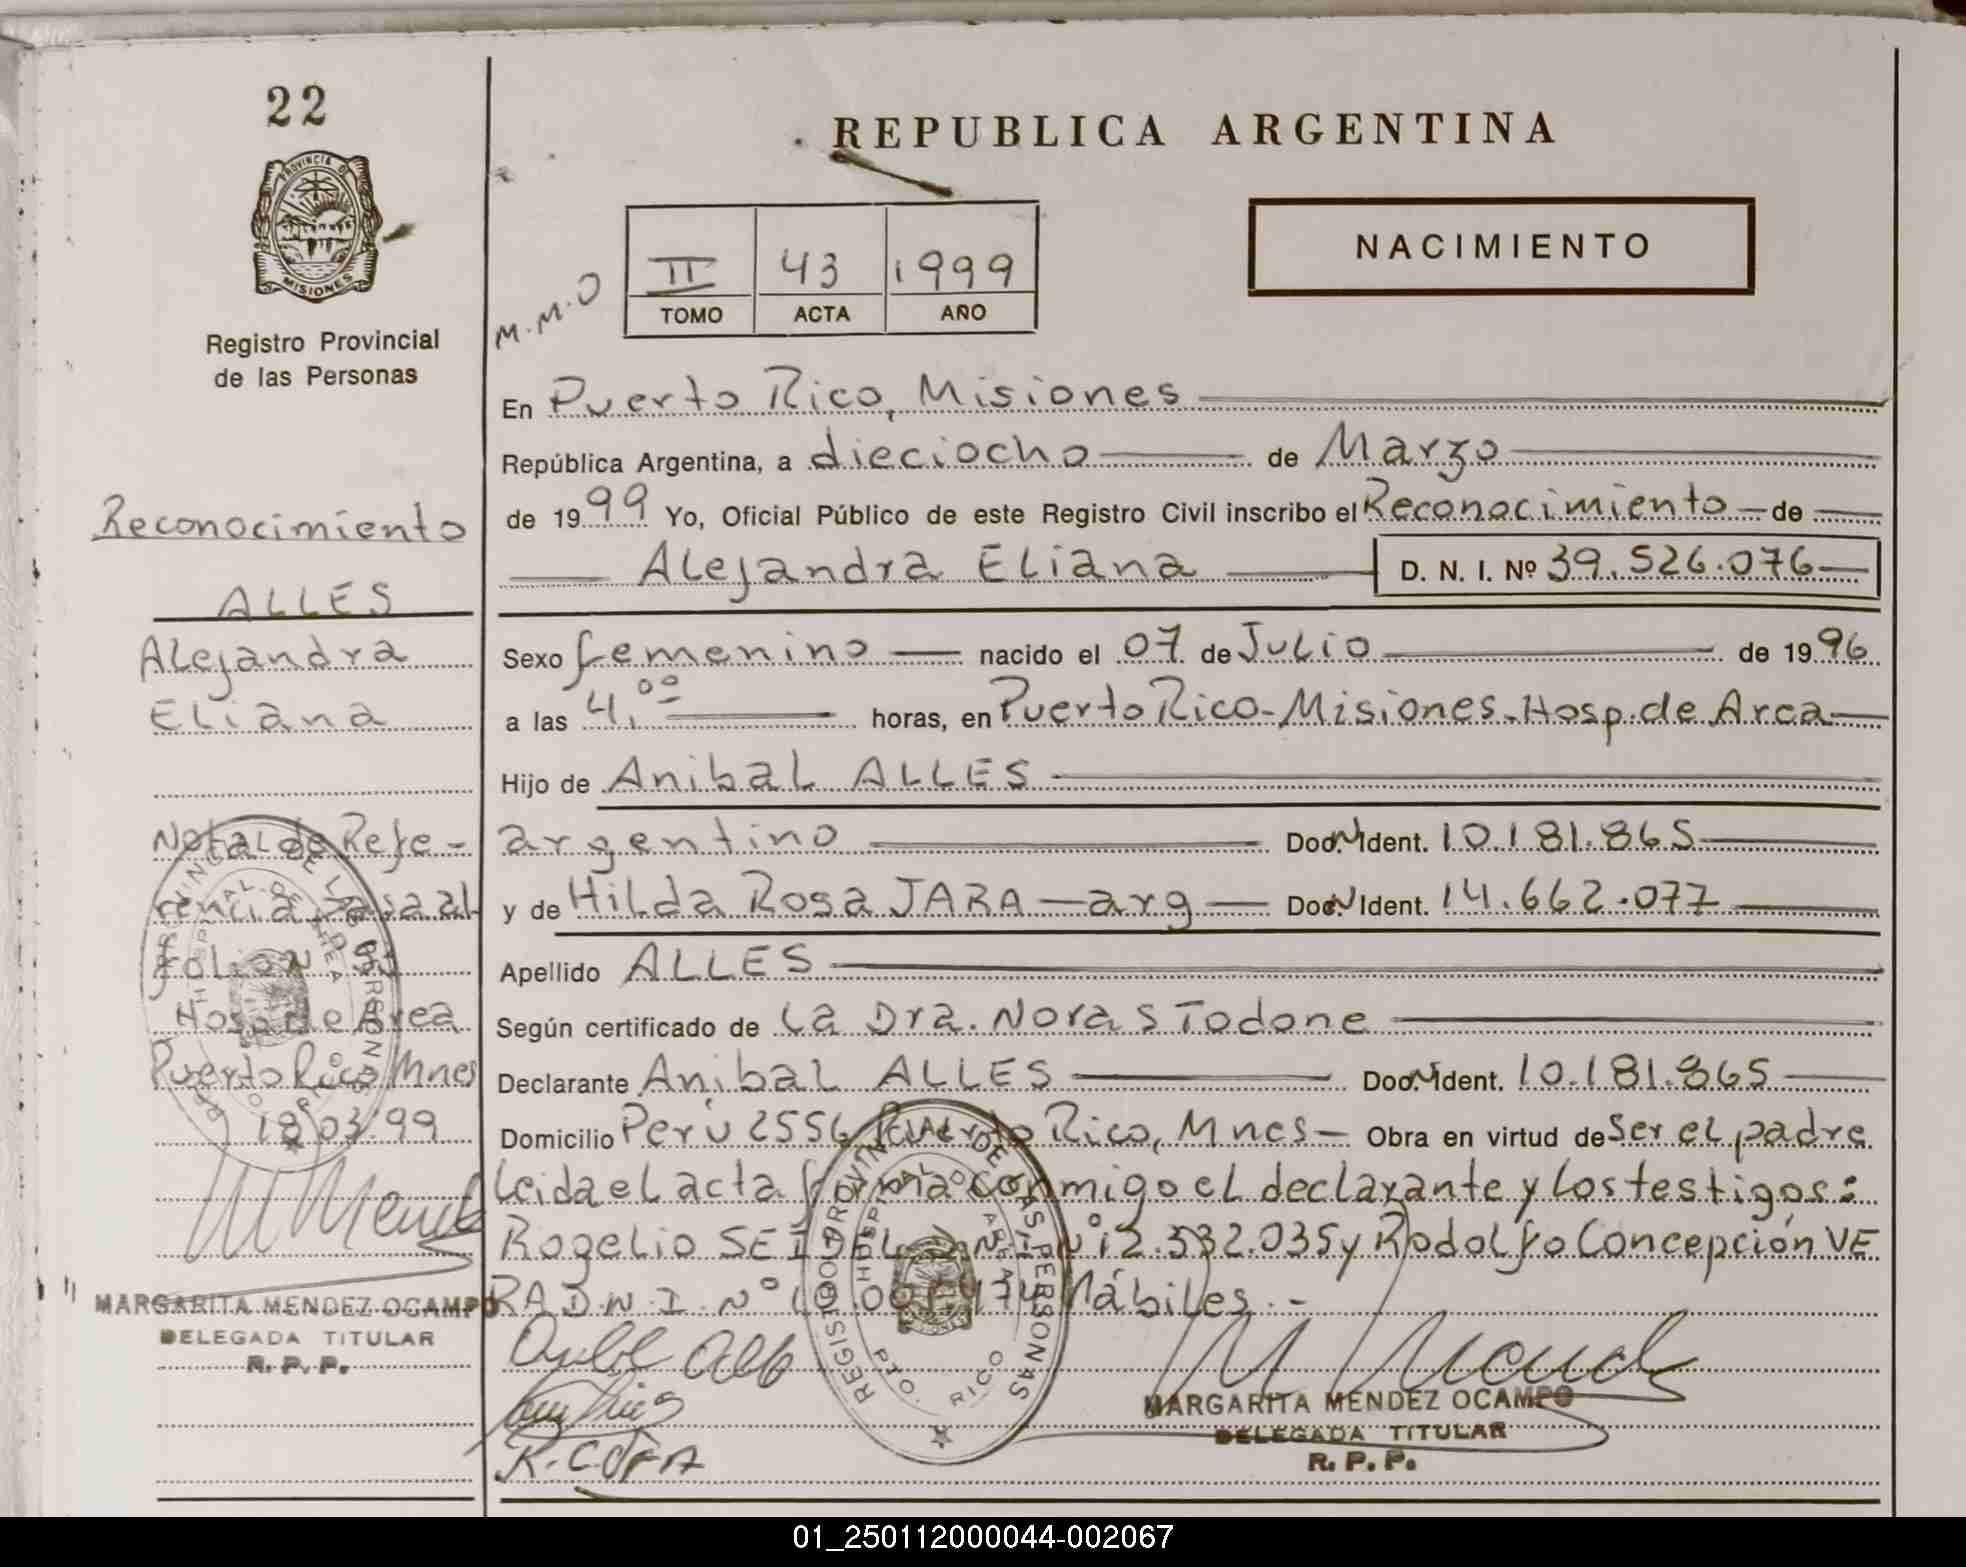 22
PROVINCIA DE
MISIONES
Registro Provincial
de las Personas
Reconocimiento
ALLES
Alejandra
Eliana
Nota: de Refe-
rencia pasa al
folio N° 
Hosp de Area
Puerto Rico, Mnes
18/03/99
MARGARITA MENDEZ OCAMPO
DELEGADA TITULAR
R. P. P.
REPUBLICA ARGENTINA
NACIMIENTO
M.M.O
II 43 1999
TOMO ACTA AÑO
En Puerto Rico, Misiones
República Argentina, a dieciocho de Marzo
de 1999 Yo, Oficial Público de este Registro Civil inscribo el Reconocimiento de
Alejandra Eliana D. N. I. Nº 39.526.076
Sexo femenino nacido el 07 de Julio de 1996
a las 4,00 horas, en Puerto Rico-Misiones-Hosp. de Area
Hijo de Anibal ALLES
argentino Doc. N Ident. 10.181.865
y de Hilda Rosa JARA - arg Doc. N Ident. 14.662.077
Apellido ALLES
Según certificado de La Dra. Nora Stodone
Declarante Anibal ALLES Doc. N Ident. 10.181.865
Domicilio Perú 2556 Puerto Rico, Mnes Obra en virtud de Ser el padre
Leida el acta firma conmigo el declarante y los testigos:
Rogelio SEIDEL D.N.I. N° 12.532.035 y Rodolfo Concepción VE
RA D.N.I. N° Hábiles.-
REGISTRO PROVINCIAL DE LAS PERSONAS
HOSPITAL DE AREA
PTO. RICO
MARGARITA MENDEZ OCAMPO
DELEGADA TITULAR
R. P. P.
01_250112000044-002067